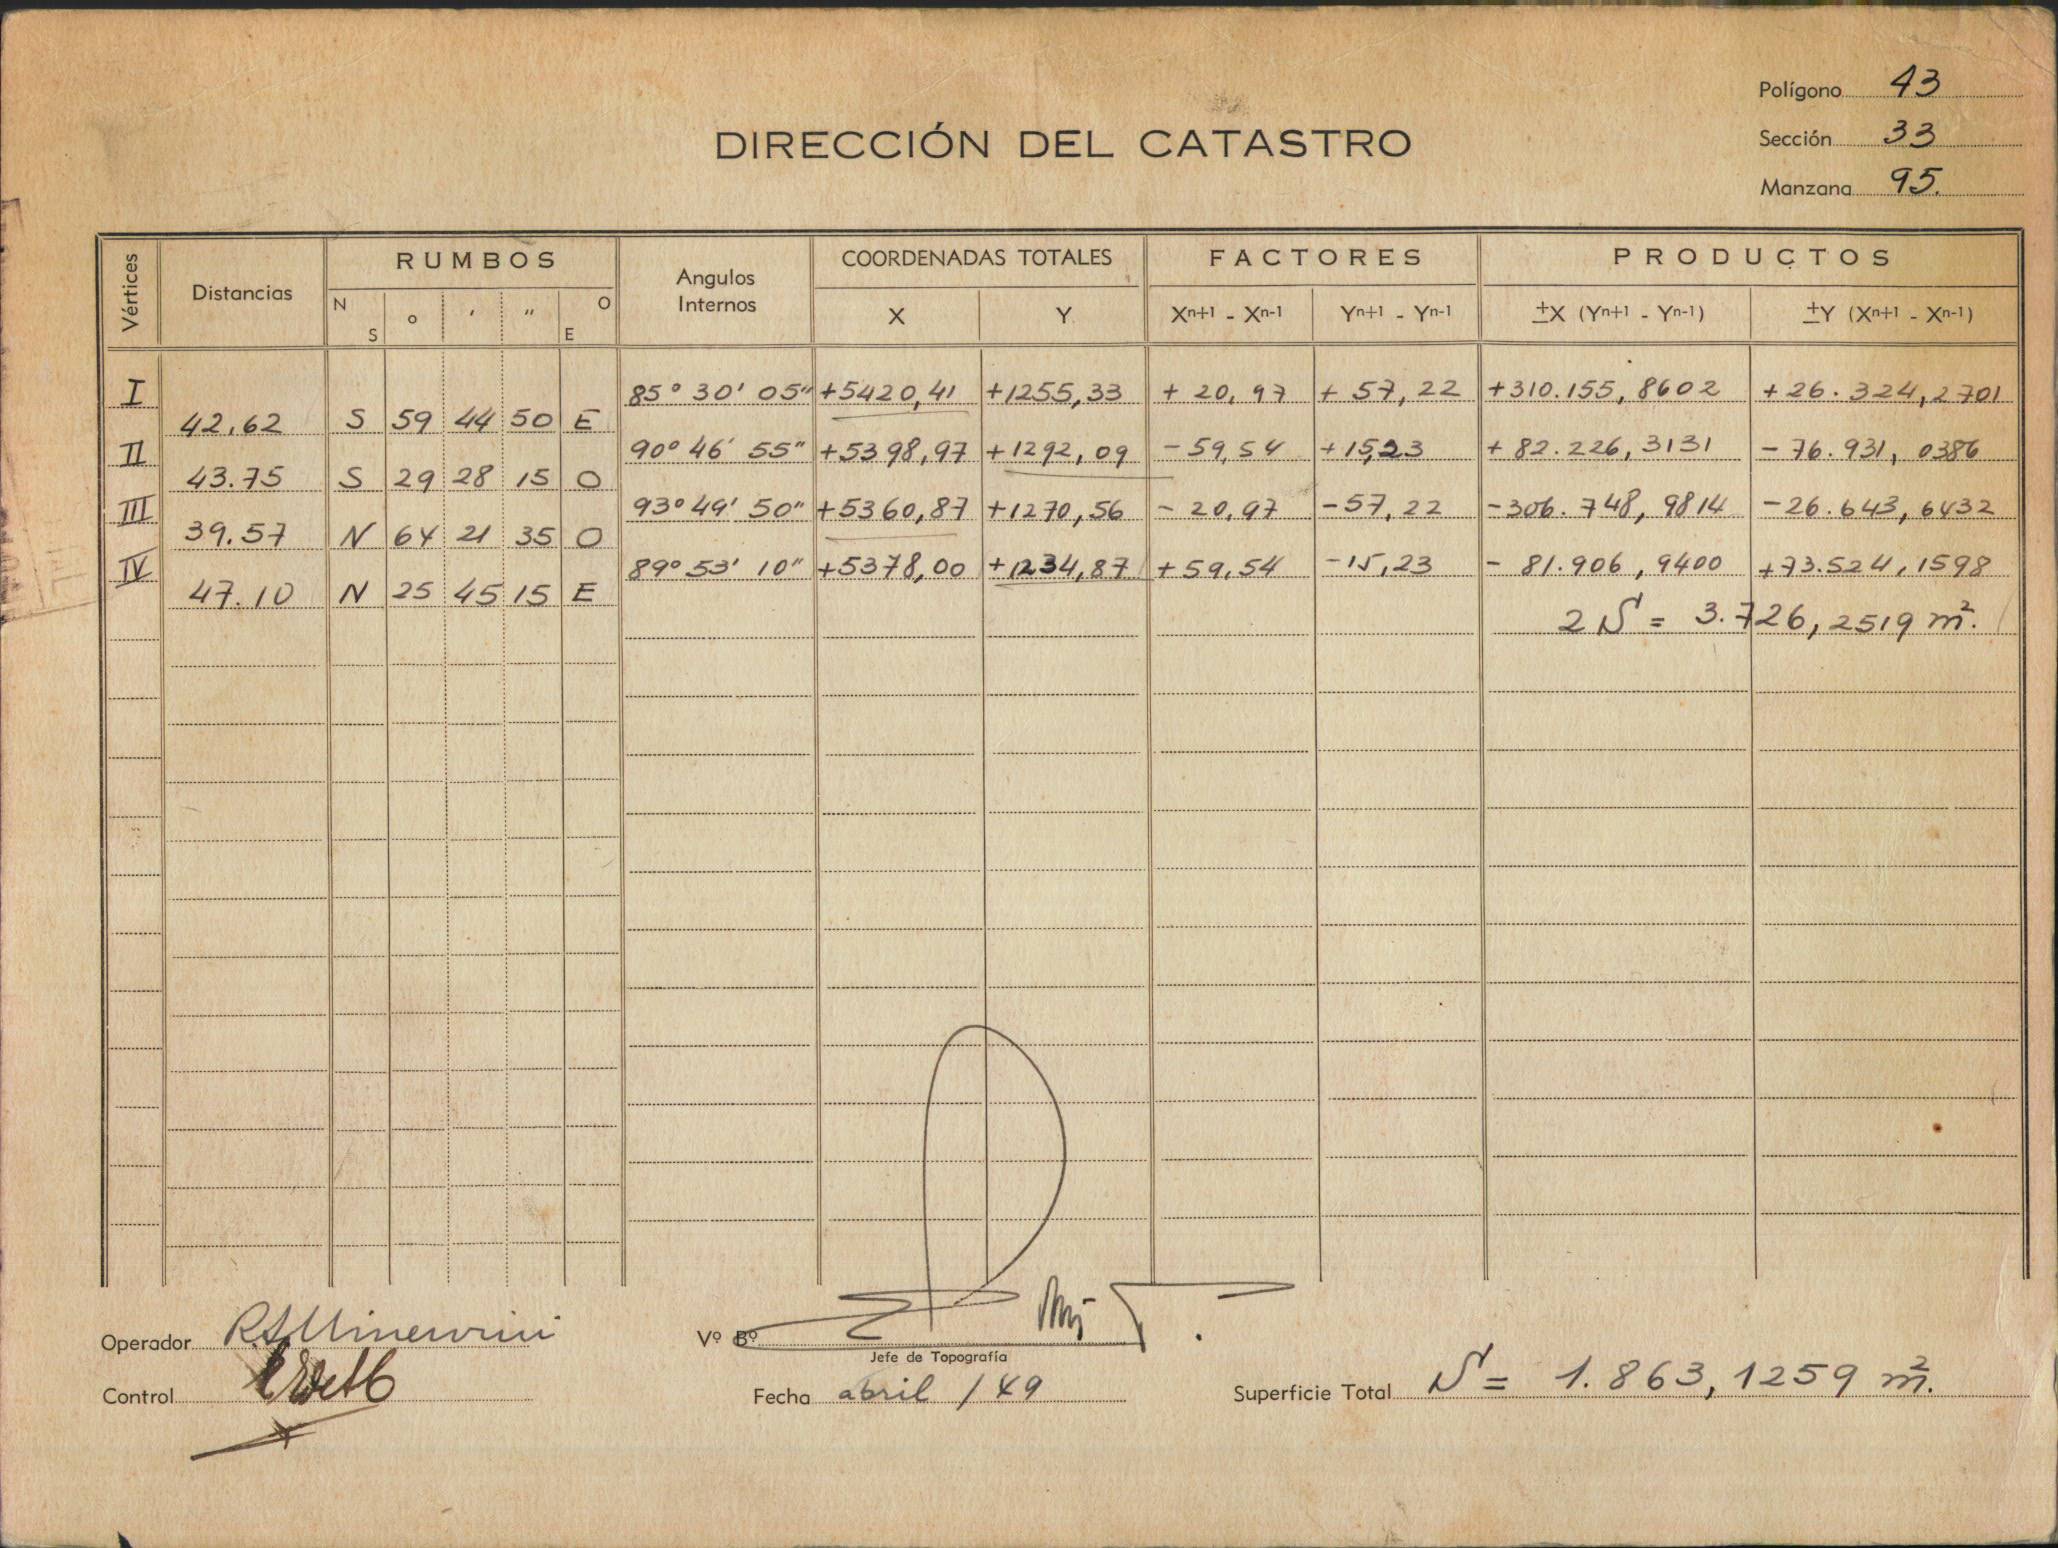 Polígono 43
DIRECCIÓN DEL CATASTRO
Sección 33
Manzana 95.
Vértices Distancias RUMBOS Angulos Internos COORDENADAS TOTALES FACTORES PRODUCTOS
N S o ′ ″ O E X Y Xn+1 - Xn-1 Yn+1 - Yn-1 ±X (Yn+1 - Yn-1) ±Y (Xn+1 - Xn-1)
I 85° 30' 05" +5420,41 +1255,33 + 20,97 + 57,22 +310.155,8602 +26.324,2701
42.62 S 59 44 50 E
II 90° 46' 55" +5398,97 +1292,09 - 59,54 +15,23 + 82.226,3131 - 76.931,0386
43.75 S 29 28 15 O
III 93° 49' 50" +5360,87 +1270,56 - 20,97 -57,22 -306.748,9814 -26.643,6432
39.57 N 64 21 35 O
IV 89° 53' 10" +5378,00 +1234,87 +59,54 -15,23 - 81.906,9400 +73.524,1598
47.10 N 25 45 15 E
2 S = 3.726,2519 m².
Operador
Vº Bº
Jefe de Topografía
Control
Fecha abril / 49
Superficie Total S = 1.863,1259 m².